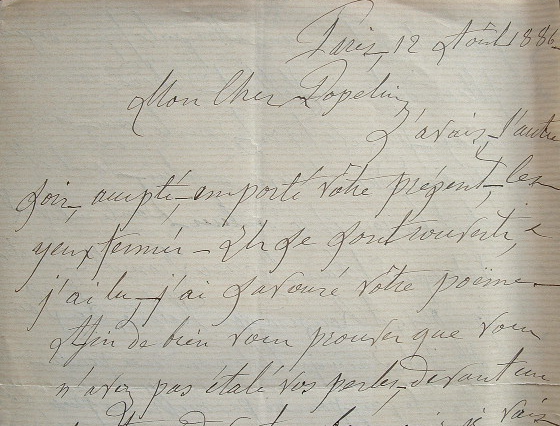 Paris, 12 Août 1886
Mon Cher Popelin
J'avais, l'autre
soir, accepté, emporté vôtre présent, les
yeux fermés – Ils se sont rouverts, &
j'ai lu, j'ai savouré vôtre poëme.
Afin de bien vous prouver que vous
n'avez pas étalé vos perles, devant un
vais